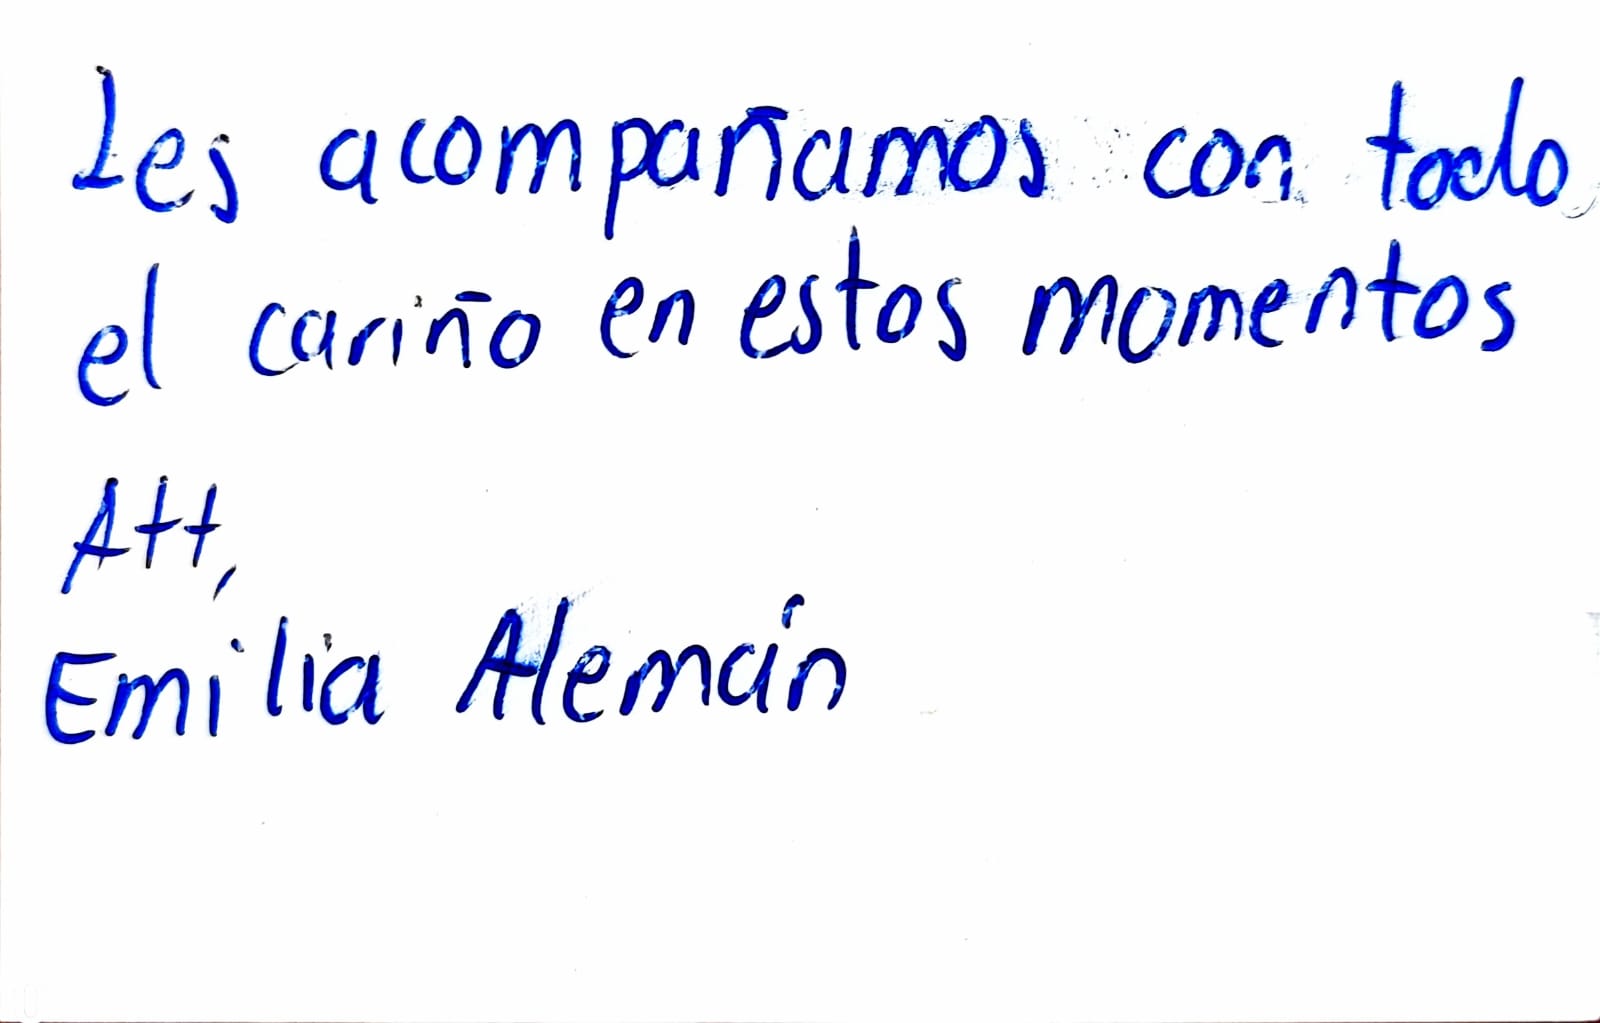 Les acompañamos con todo
el cariño en estos momentos
Att,
Emilia Alemán